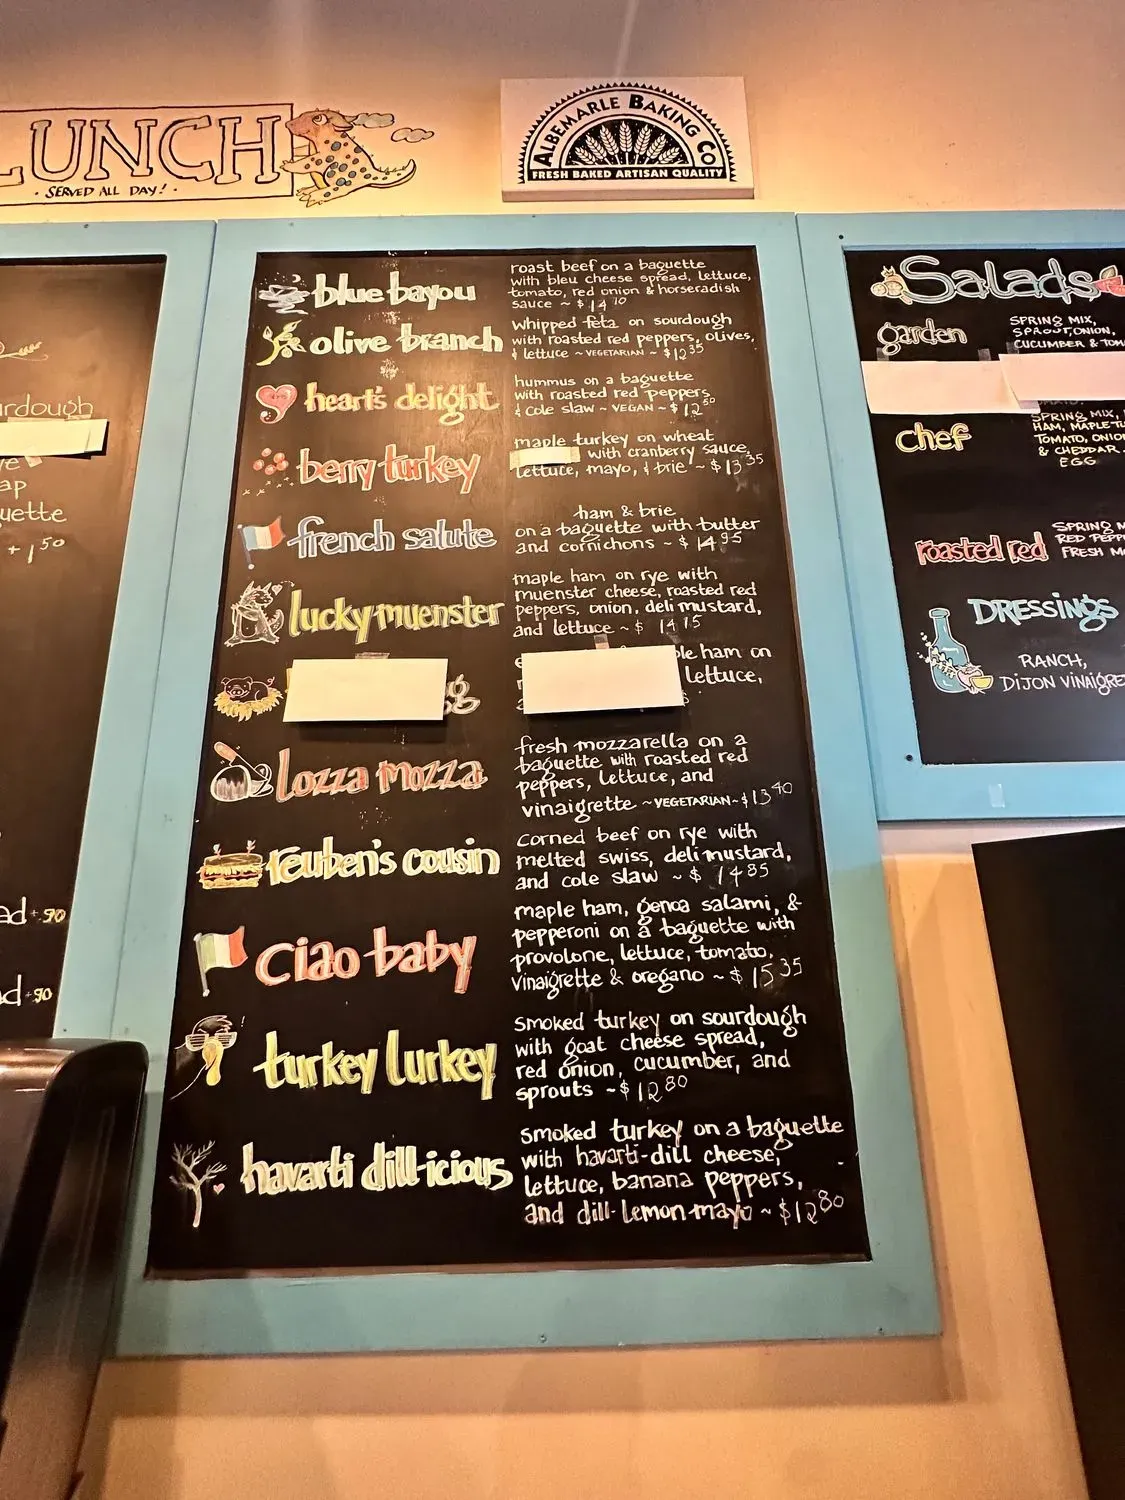 LUNCH
· SERVED ALL DAY! ·
ALBEMARLE BAKING CO
FRESH BAKED ARTISAN QUALITY
rdough
ap
uette
+ 1 50
ad + .90
d + .90
blue bayou
roast beef on a baguette
with bleu cheese spread, lettuce,
tomato, red onion & horseradish
sauce ~ $ 14 70
olive branch
whipped feta on sourdough
with roasted red peppers, olives,
& lettuce ~ VEGETARIAN ~ $12 35
heart's delight
hummus on a baguette
with roasted red peppers
& cole slaw ~ VEGAN ~ $ 12 80
berry turkey
maple turkey on wheat
with cranberry sauce,
lettuce, mayo, & brie ~ $ 13 35
french salute
ham & brie
on a baguette with butter
and cornichons ~ $ 14 95
lucky muenster
maple ham on rye with
muenster cheese, roasted red
peppers, onion, deli mustard,
and lettuce ~ $ 14 15
g
ple ham on
lettuce,
$
Lozza mozza
fresh mozzarella on a
baguette with roasted red
peppers, lettuce, and
vinaigrette ~ VEGETARIAN ~ $13 40
reuben's cousin
corned beef on rye with
melted swiss, deli mustard,
and cole slaw ~ $ 14 85
ciao baby
maple ham, genoa salami, &
pepperoni on a baguette with
provolone, lettuce, tomato,
vinaigrette & oregano ~ $ 15 35
turkey lurkey
smoked turkey on sourdough
with goat cheese spread,
red onion, cucumber, and
sprouts ~ $ 12 80
havarti dill-icious
smoked turkey on a baguette
with havarti-dill cheese,
lettuce, banana peppers,
and dill-lemon-mayo ~ $12 80
Salads
garden
SPRING MIX,
SPROUT, ONION,
CUCUMBER & TOM
chef
SPRING MIX,
HAM, MAPLE TU
TOMATO, ONIO
& CHEDDAR.
EGG
roasted red
SPRING M
RED PEPP
FRESH M
DRESSINGS
RANCH,
DIJON VINAIGRE